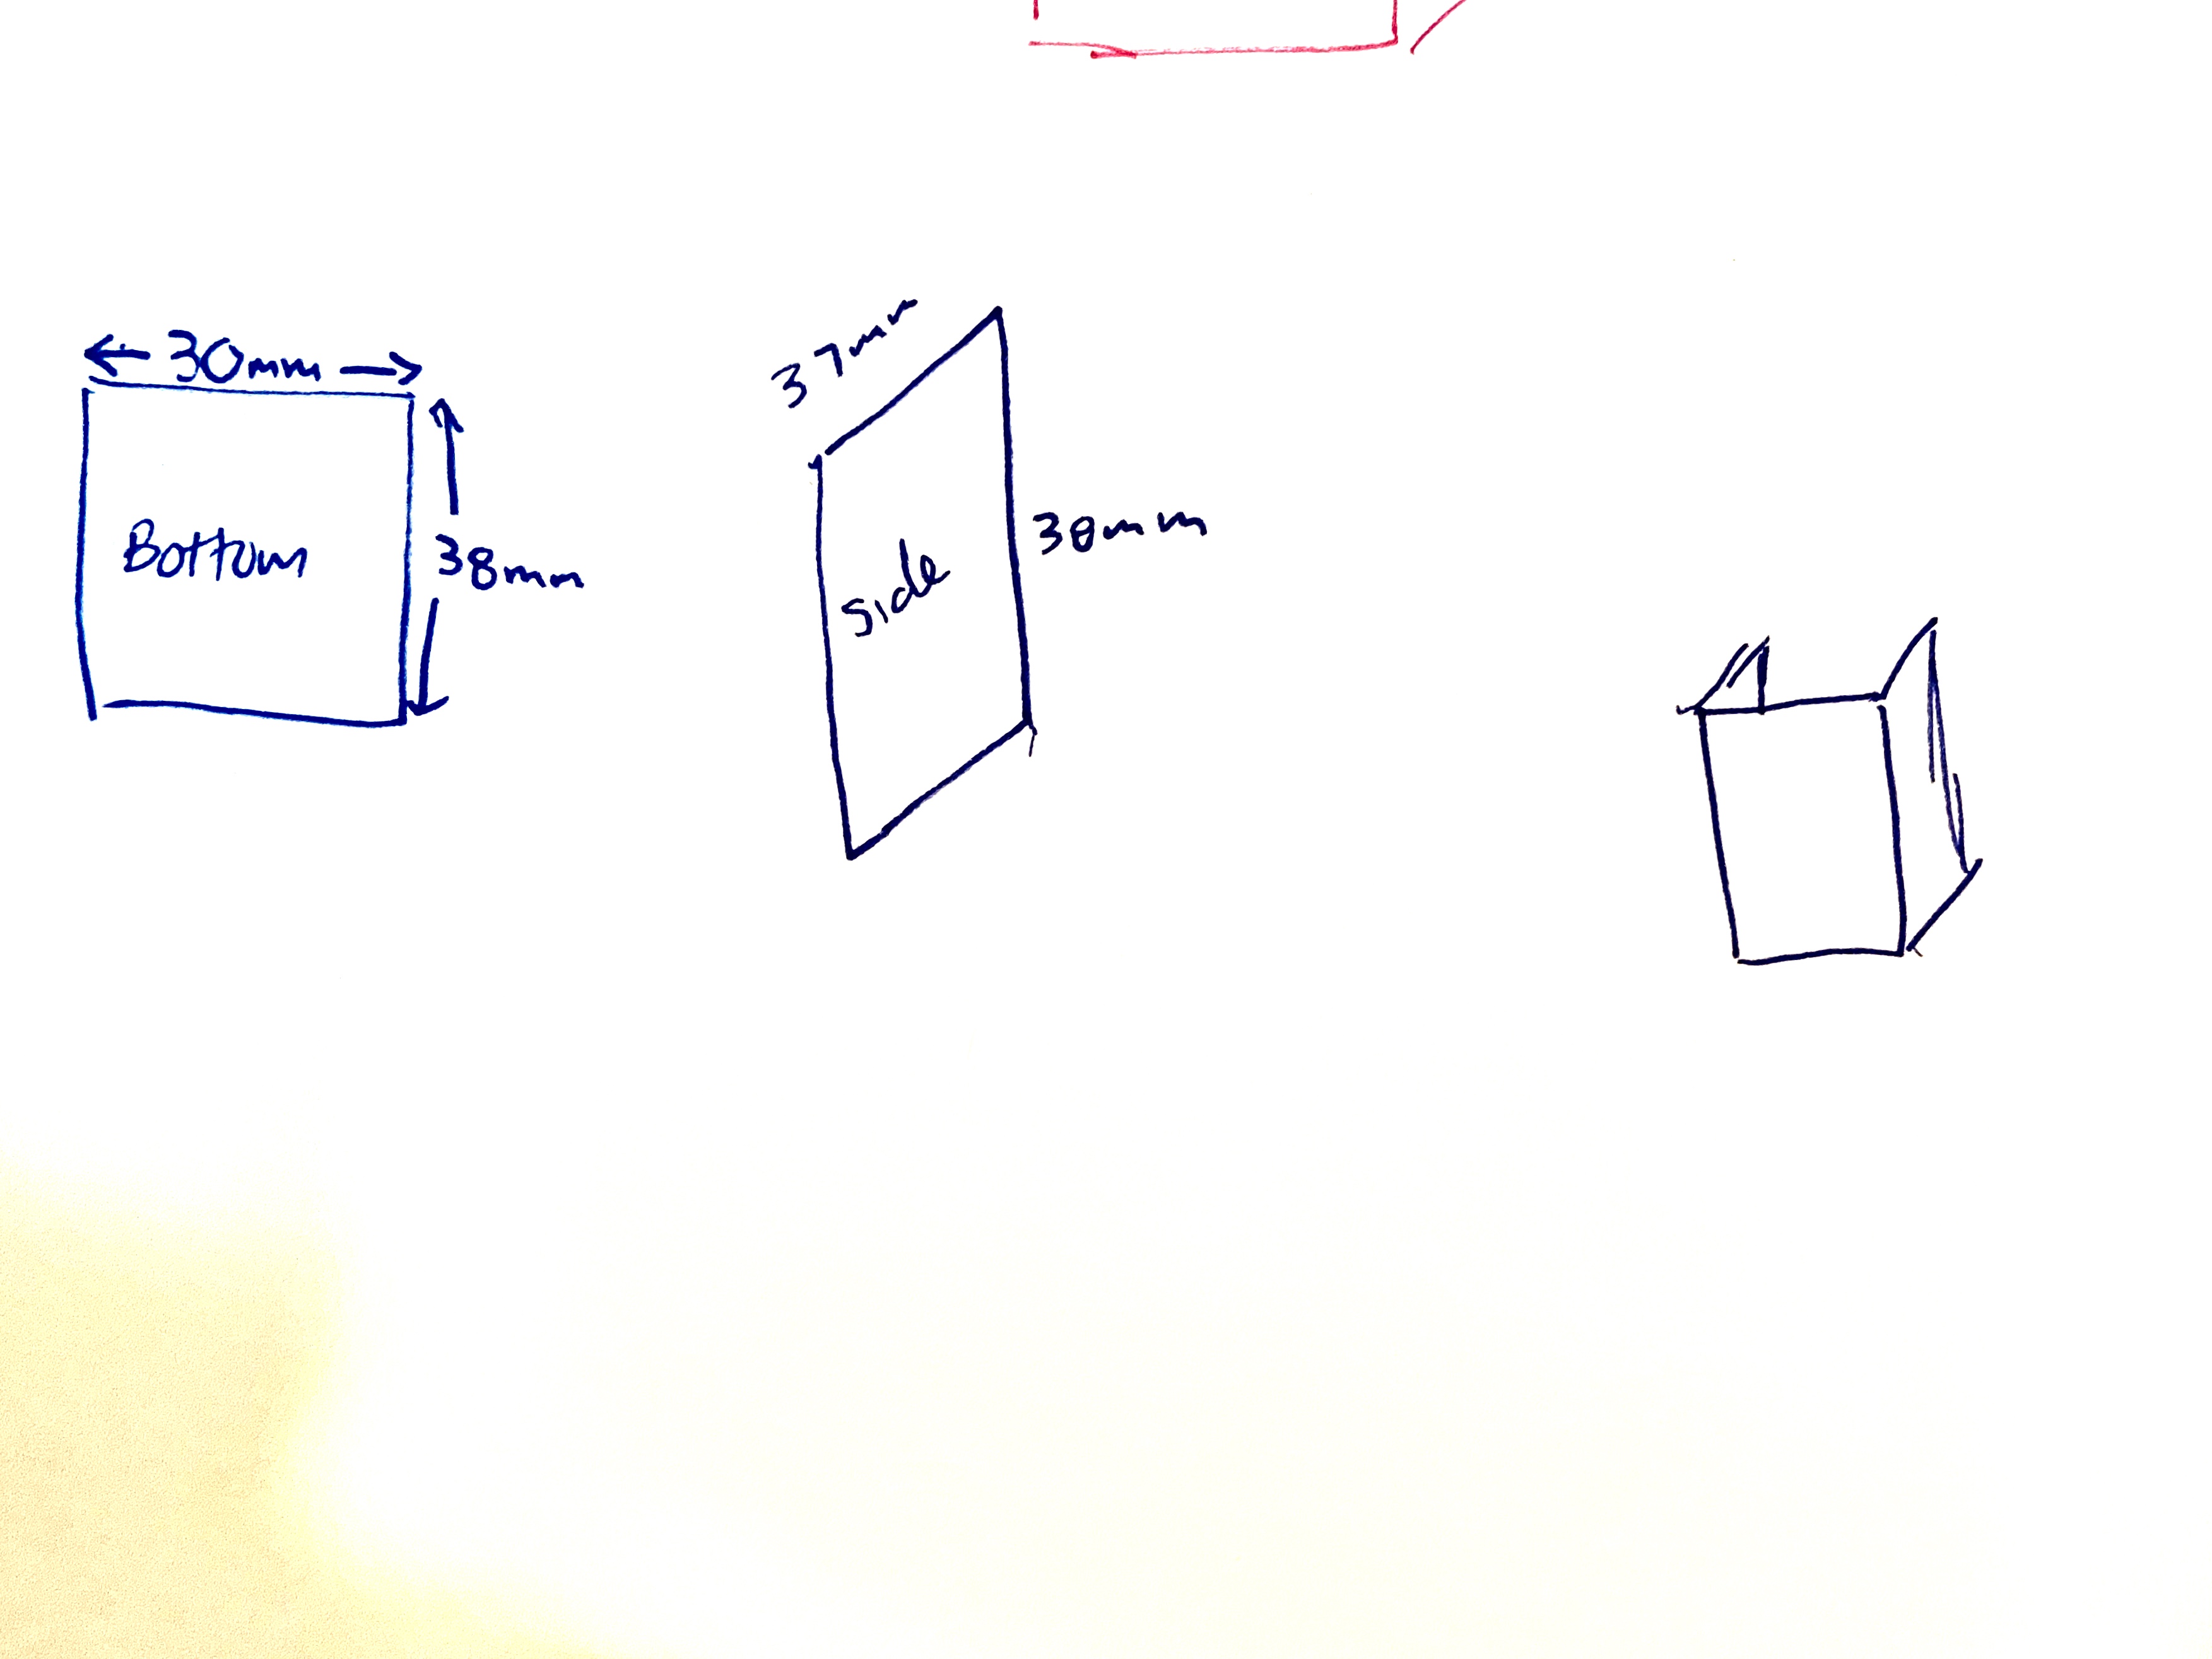 30mm
Bottom
38mm
37mm
side
38mm